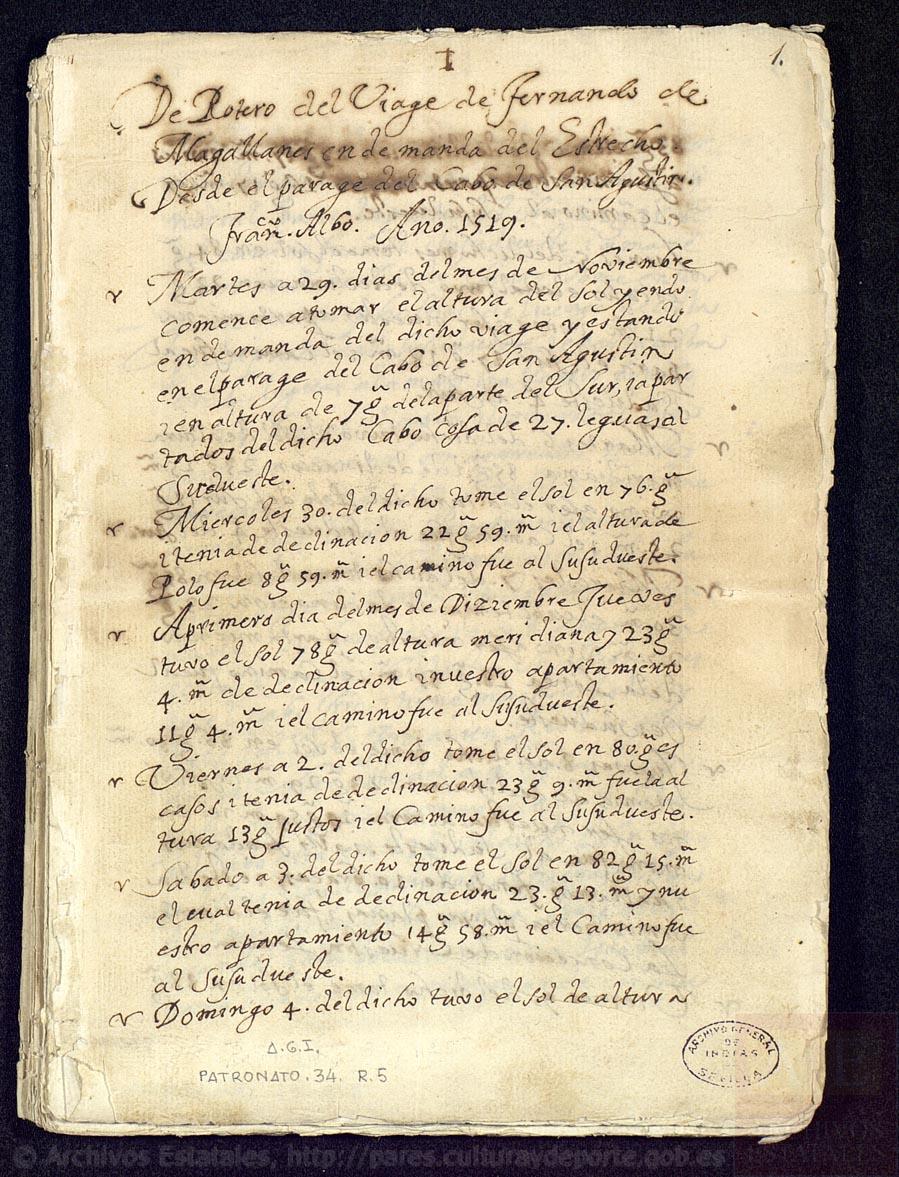 1.
De Rotero del Viage de Fernando de
Magallanes en demanda del Estrecho.
Desde el parage del Cabo de San Agustin.
Franco. Albo. Ano. 1519.
Martes a 29. dias del mes de Noviembre
comence a tomar el altura del Sol yendo
en demanda del dicho viage y estando
en el parage del Cabo de San Agustin
i en altura de 7 g̃ de la parte del Sur, i apar
tados del dicho Cabo cosa de 27. leguas al
Sudueste.
Miercoles 30. del dicho tome el sol en 76. g̃
i tenia de declinacion 22 g̃ 59. m̃ i el altura de
Polo fue 8 g̃ 59. m̃ i el camino fue al Susudueste.
A primero dia del mes de Diziembre Jueves
tuvo el Sol 78 g̃ de altura meridiana y 23 g̃
4. m̃ de declinacion i nuestro apartamiento
11 g̃ 4. m̃ i el camino fue al Susudueste.
Viernes a 2. del dicho tome el Sol en 80. g̃ es
casos i tenia de declinacion 23 g̃ 9. m̃ fue la al
tura 13 g̃ justos i el Camino fue al Susudueste.
Sabado a 3. del dicho tome el Sol en 82 g̃ 15. m̃
el cual tenia de declinacion 23. g̃ 13. m̃ y nu
estro apartamiento 14 g̃ 58. m̃ i el Camino fue
al Susudueste.
Domingo 4. del dicho tuvo el Sol de altura
A.G.I.
PATRONATO. 34. R. 5
ARCHIVO GENERAL
DE
INDIAS
SEVILLA
© Archivos Estatales, http://pares.culturaydeporte.gob.es